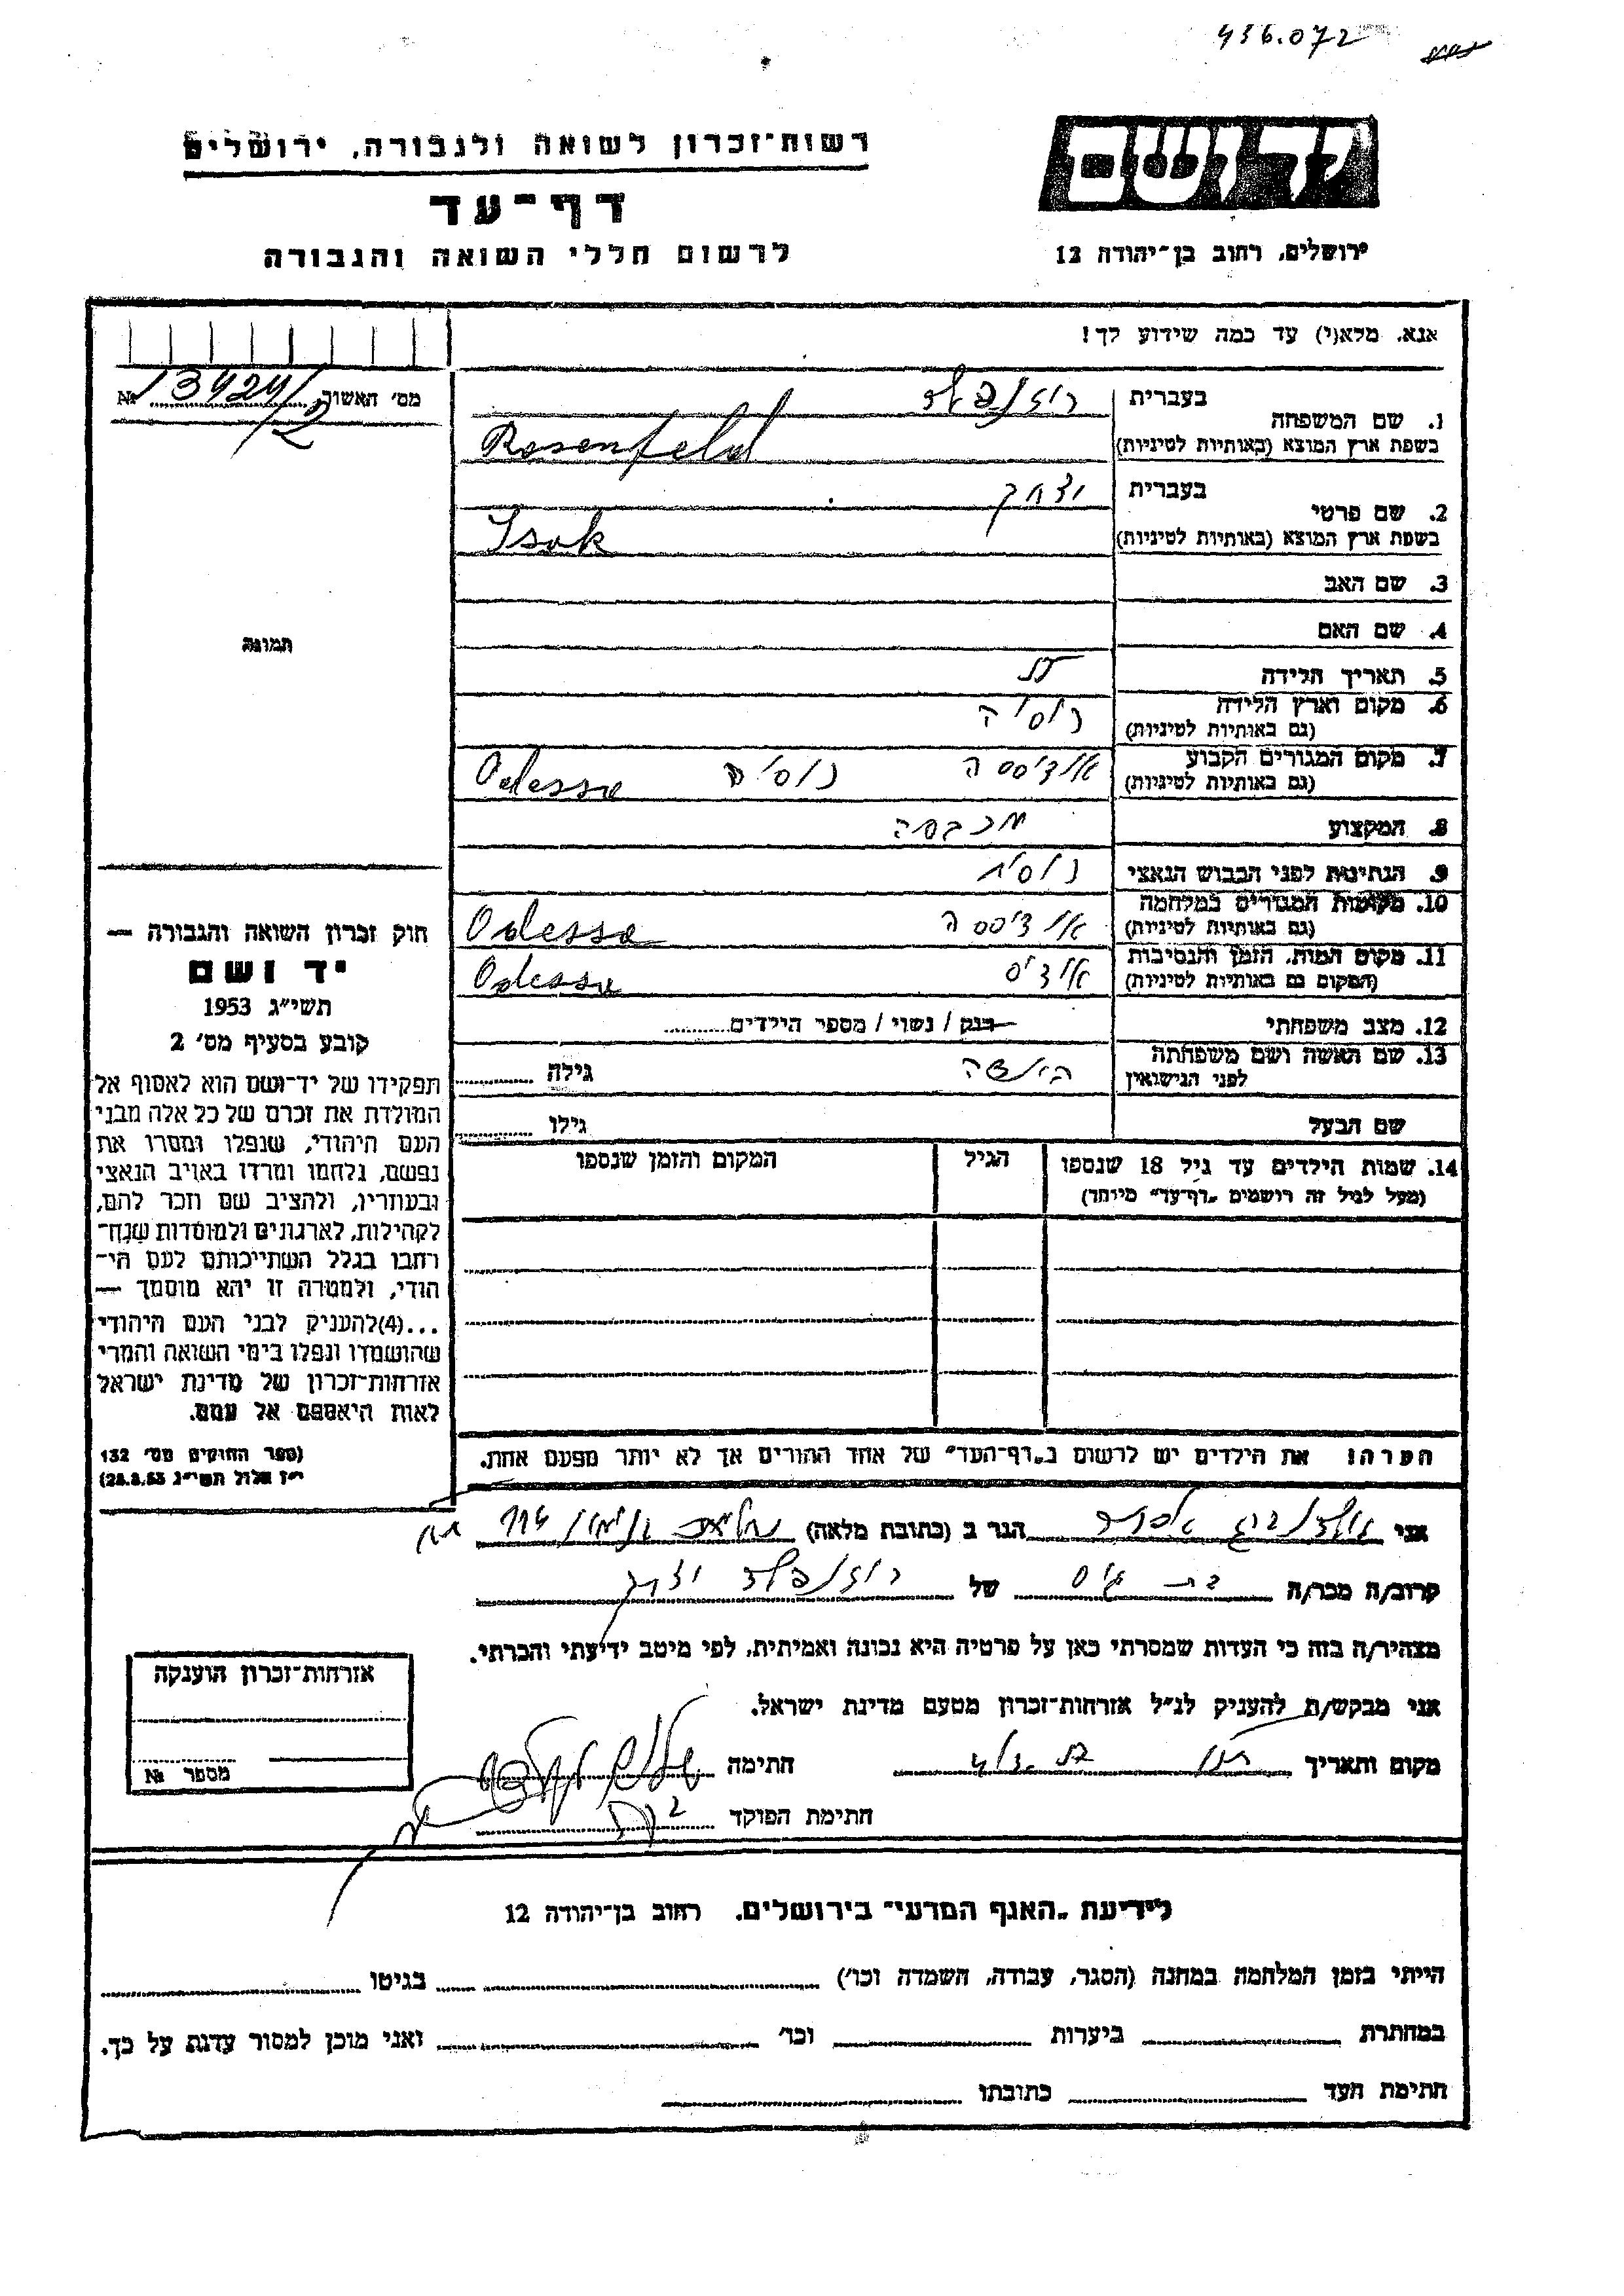 436.072
יד ושם
ירושלים, רחוב בן־יהודה 12
רשות־זכרון לשואה ולגבורה, ירושלים
דף־עד
לרשום חללי השואה והגבורה
אנא, מלא(י) עד כמה שידוע לך!
מס׳ האשור № 13424/2
תמונה
1. שם המשפחה בעברית רוזנפלד
בשפת ארץ המוצא (באותיות לטיניות) Rosenfeld
2. שם פרטי בעברית יצחק
בשפת ארץ המוצא (באותיות לטיניות) Isak
3. שם האב
4. שם האם
5. תאריך הלידה
6. מקום וארץ הלידה רוסיה
(גם באותיות לטיניות)
7. מקום המגורים הקבוע אודיססה רוסיה Odessa
(גם באותיות לטיניות)
8. המקצוע
9. הנתינות לפני הכבוש הנאצי
10. מקומות המגורים במלחמה אודיססה Odessa
(גם באותיות לטיניות)
11. מקום המות, הזמן והנסיבות אודיס Odessa
(המקום גם באותיות לטיניות)
12. מצב משפחתי רנק / נשוי / מספר הילדים
13. שם האשה ושם משפחתה גילה
לפני הנישואין
שם הבעל גילו
14. שמות הילדים עד גיל 18 שנספו הגיל המקום והזמן שנספו
(מעל לגיל זה רושמים „דף־עד״ מיוחד)
הערה! את הילדים יש לרשום ב„דף־העד״ של אחד ההורים אך לא יותר מפעם אחת.
חוק זכרון השואה והגבורה —
יד ושם
תשי״ג 1953
קובע בסעיף מס׳ 2
תפקידו של יד־ושם הוא לאסוף אל
המולדת את זכרם של כל אלה מבני
העם היהודי, שנפלו ומסרו את
נפשם, נלחמו ומרדו באויב הנאצי
ובעוזריו, ולהציב שם וזכר להם,
לקהילות, לארגונים ולמוסדות שנח־
רחבו בגלל השתייכותם לעם הי־
הודי, ולמטרה זו יהא מוסמך —
...(4)להעניק לבני העם היהודי
שהושמדו ונפלו בימי השואה והמרי
אזרחות־זכרון של מדינת ישראל
לאות היאספם אל עמם.
(ספר החוקים מס׳ 132
י״ז אלול תשי״ג 28.8.53)
אני הגר ב (כתובת מלאה)
קרוב/ה מכר/ה של רוזנפלד יצחק
מצהיר/ה בזה כי העדות שמסרתי כאן על פרטיה היא נכונה ואמיתית, לפי מיטב ידיעתי והכרתי.
אני מבקש/ת להעניק לנ״ל אזרחות־זכרון מטעם מדינת ישראל.
מקום ותאריך חתימה
חתימת הפוקד
אזרחות־זכרון הוענקה
מספר №
לידיעת „האגף המדעי״ בירושלים, רחוב בן־יהודה 12
הייתי בזמן המלחמה במחנה (הסגר, עבודה, השמדה וכו׳) בגיטו
במחתרת ביערות וכו׳ ואני מוכן למסור עדות על כך.
חתימת העד כתובתו